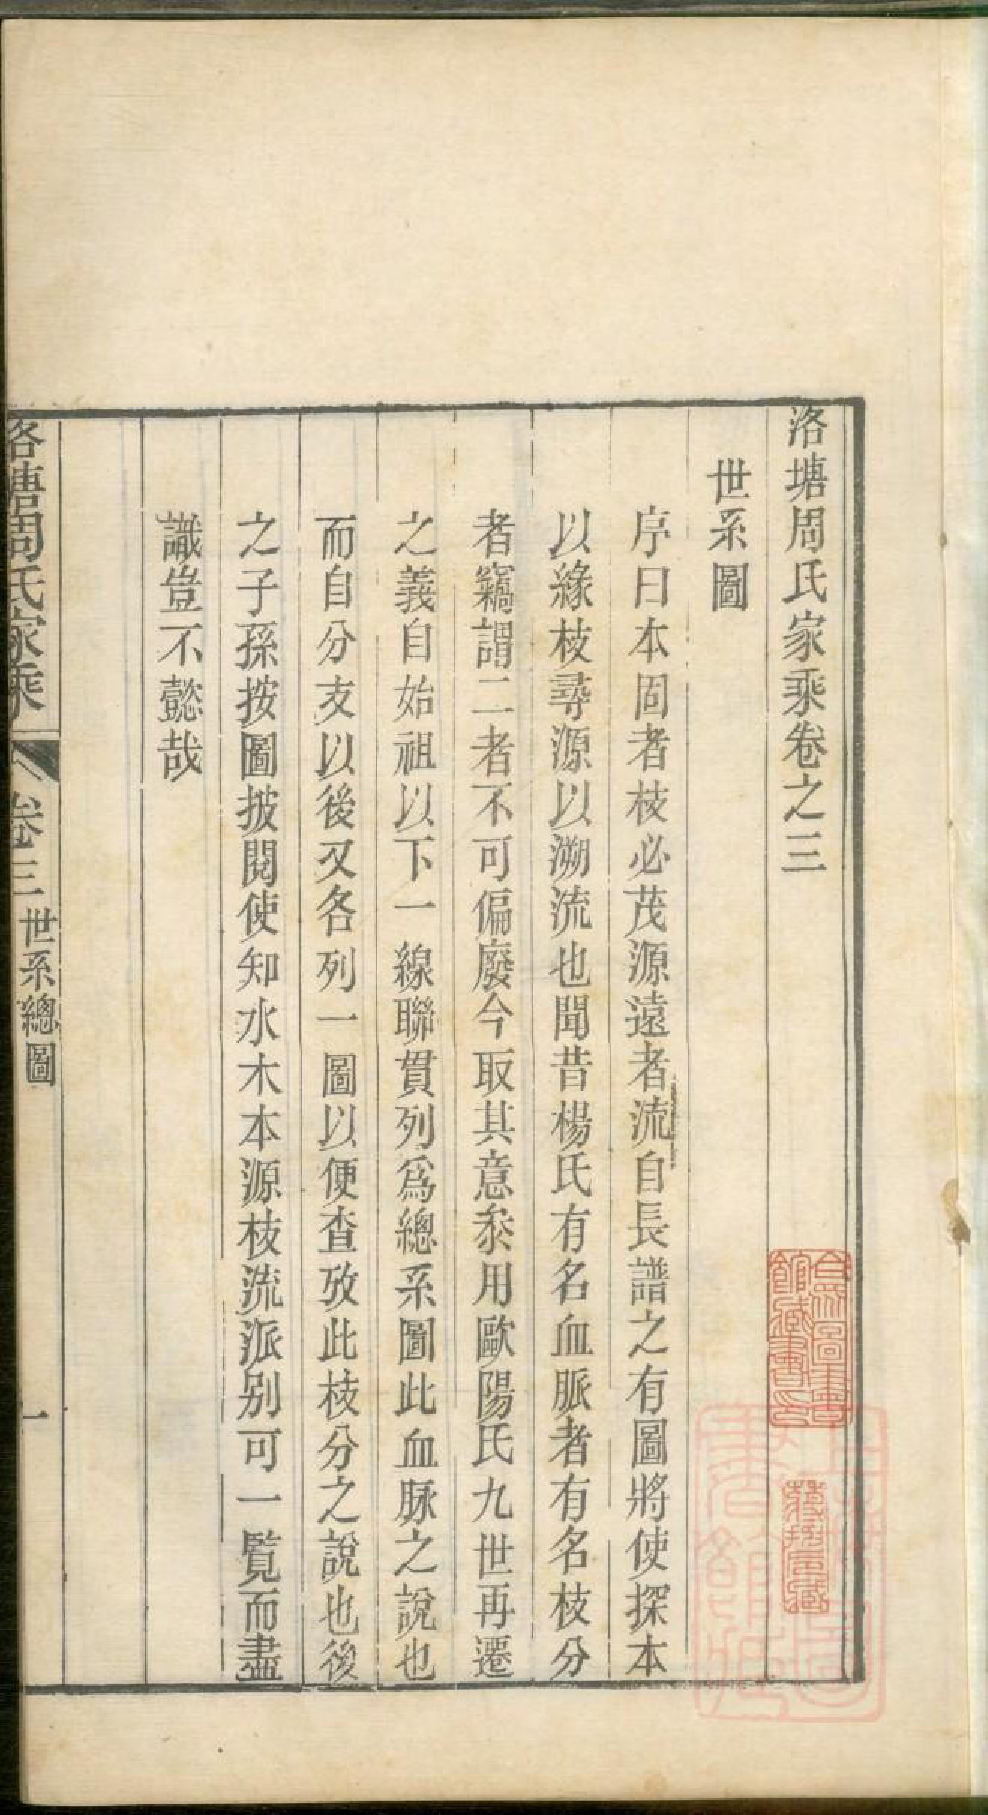 洛塘周氏家乘卷之三
世系圖
序曰本固者枝必茂源遠者流自長譜之有圖將使探本
以緣枝尋源以溯流也聞昔楊氏有名血脈者有名枝分
者竊謂二者不可偏廢今取其意叅用歐陽氏九世再遷
之義自始祖以下一線聯貫列爲總系圖此血脉之說也
而自分支以後又各列一圖以便查攷此枝分之說也後
之子孫按圖披閱使知水木本源枝流派别可一覧而盡
識豈不懿哉
洛塘周氏家乘
卷三
世系總圖
一